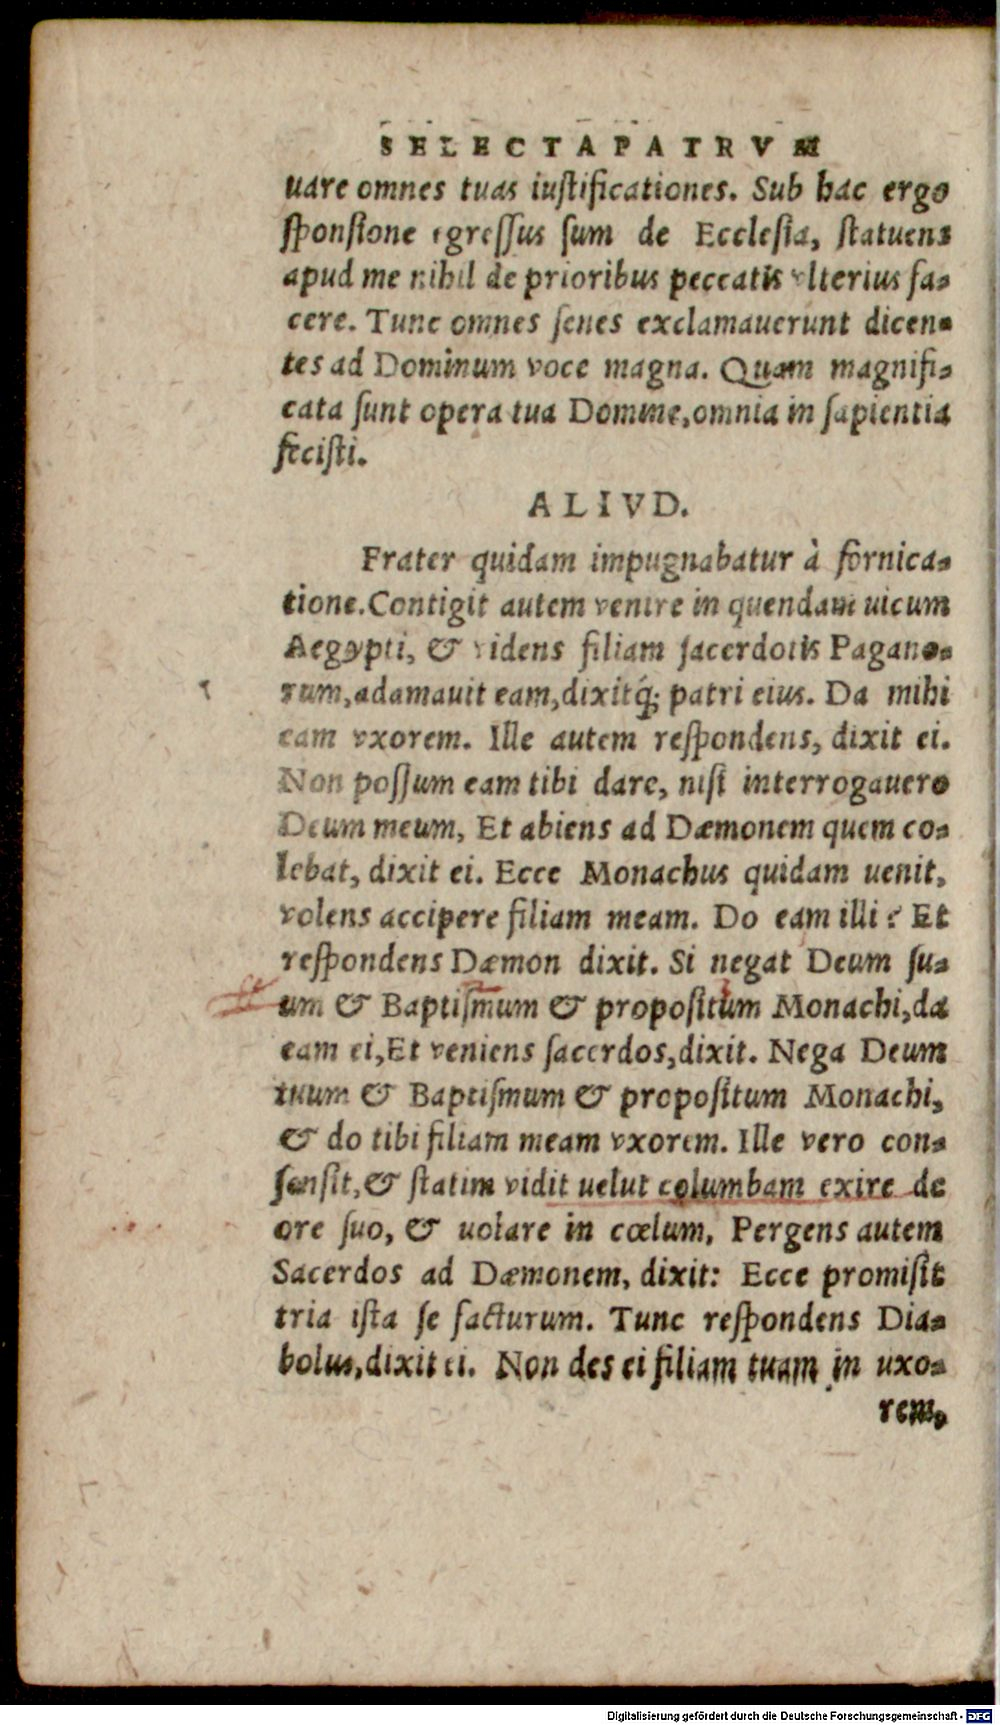 SELECTA PATRVM
uare omnes tuas iustificationes. Sub hac ergo
sponsione egressus sum de Ecclesia, statuens
apud me nihil de prioribus peccatis vlterius fa-
cere. Tunc omnes senes exclamauerunt dicen-
tes ad Dominum voce magna. Quam magnifi-
cata sunt opera tua Domine, omnia in sapientia
fecisti.
ALIVD.
Frater quidam impugnabatur à fornica-
tione. Contigit autem venire in quendam uicum
Aegypti, & videns filiam sacerdotis Pagano-
rum, adamauit eam, dixitq́; patri eius. Da mihi
eam vxorem. Ille autem respondens, dixit ei.
Non possum eam tibi dare, nisi interrogauero
Deum meum, Et abiens ad Dæmonem quem co-
lebat, dixit ei. Ecce Monachus quidam uenit,
volens accipere filiam meam. Do eam illi? Et
respondens Dæmon dixit. Si negat Deum su-
um & Baptismum & propositum Monachi, da
eam ei, Et veniens sacerdos, dixit. Nega Deum
tuum & Baptismum & propositum Monachi,
& do tibi filiam meam vxorem. Ille vero con-
sensit, & statim vidit uelut columbam exire de
ore suo, & uolare in cœlum, Pergens autem
Sacerdos ad Dæmonem, dixit: Ecce promisit
tria ista se facturum. Tunc respondens Dia-
bolus, dixit ei. Non des ei filiam tuam in uxo-
rem,
Digitalisierung gefördert durch die Deutsche Forschungsgemeinschaft - DFG